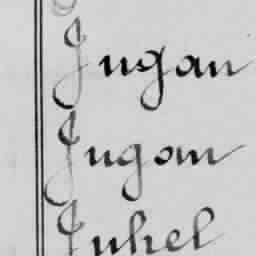 Jugan
Jugan
Juhel